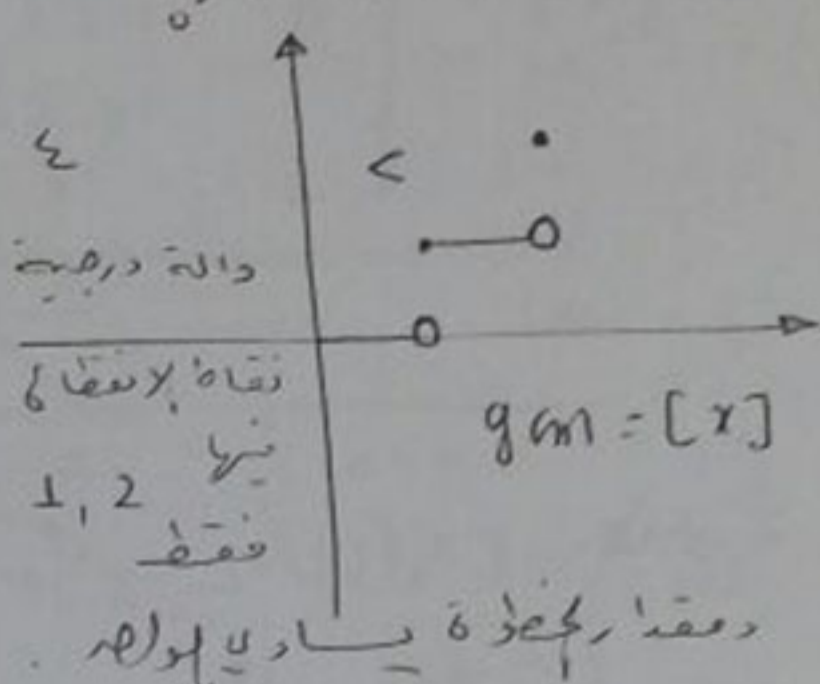 دالة درجية
نقاط الانقطاع
فيها
1, 2
فقط
g(x) = [x]
ومقدار الخطوة يساوي الواحد .